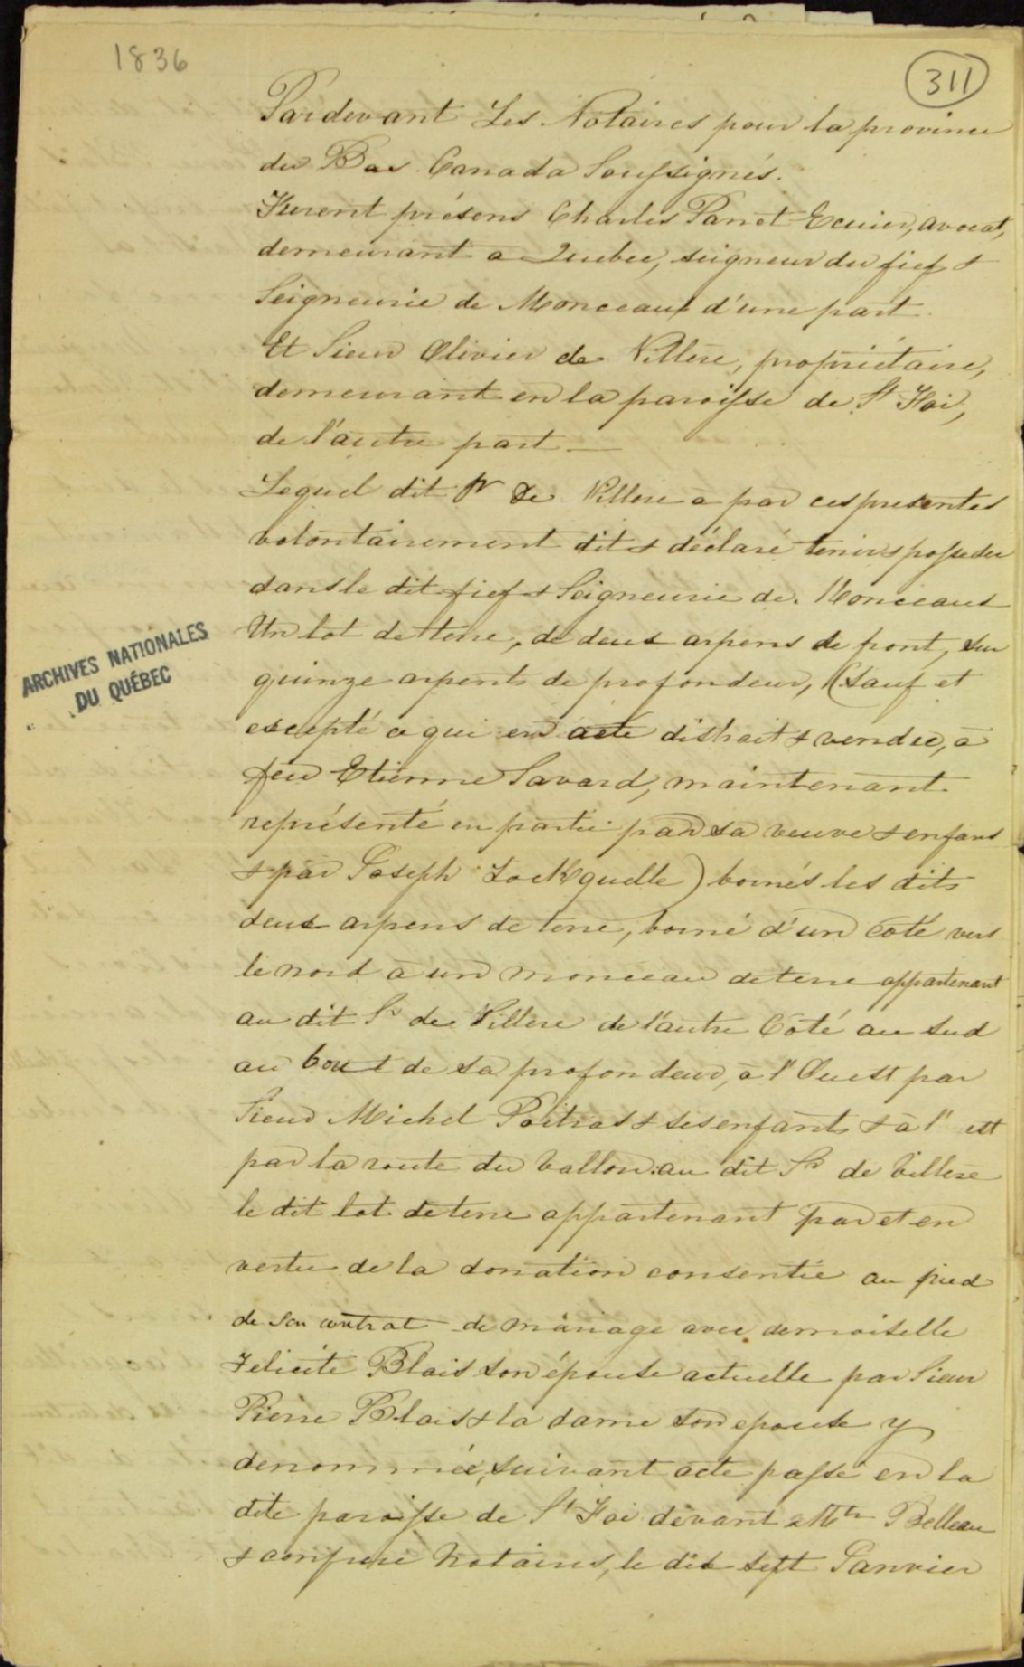 1836
311
Pardevant Les Notaires pour la province
du Bas Canada Soussignés.
Furent présens Charles Panet Ecuier, avocat,
demeurant a Quebec, seigneur du fief &
Seigneurie de Monceaux d'une part.
Et Sieur Olivier de Villere, propriétaire,
demeurant en la paroisse de St Foi,
de l'autre part —
Lequel dit Sr De Villere a par ces presentes
volontairement dit & déclaré tenir & posseder
dans le dit fief & Seigneurie de Monceaux
Un lot de terre, de deux arpens de front, sur
quinze arpents de profondeur, (Sauf et
excepté ce qui en a été distrait & vendu, à
feu Etienne Savard, maintenant
représenté en partie par sa veuve & enfans
& par Joseph) bornés les dits
deux arpens de terre, borné d'un coté vers
le nord à un monceau de terre appartenant
au dit Sr de Villere de l'autre Côté au sud
au bout de sa profondeur, à l'Ouest par
Sieur Michel Poitras & ses enfants & à l'est
par la route du Vallon au dit Sr de Villere
le dit lot de terre appartenant par et en
vertu de la donation consentie au pied
de son contrat de mariage avec demoiselle
Felicite Blais son épouse actuelle par Sieur
Pierre Blais & la dame son epouse y
denommée, suivant acte passé en la
dite paroisse de St Foi devant Mtre Belleau
& confrere Notaires, le dix sept Janvier
ARCHIVES NATIONALES
DU QUÉBEC